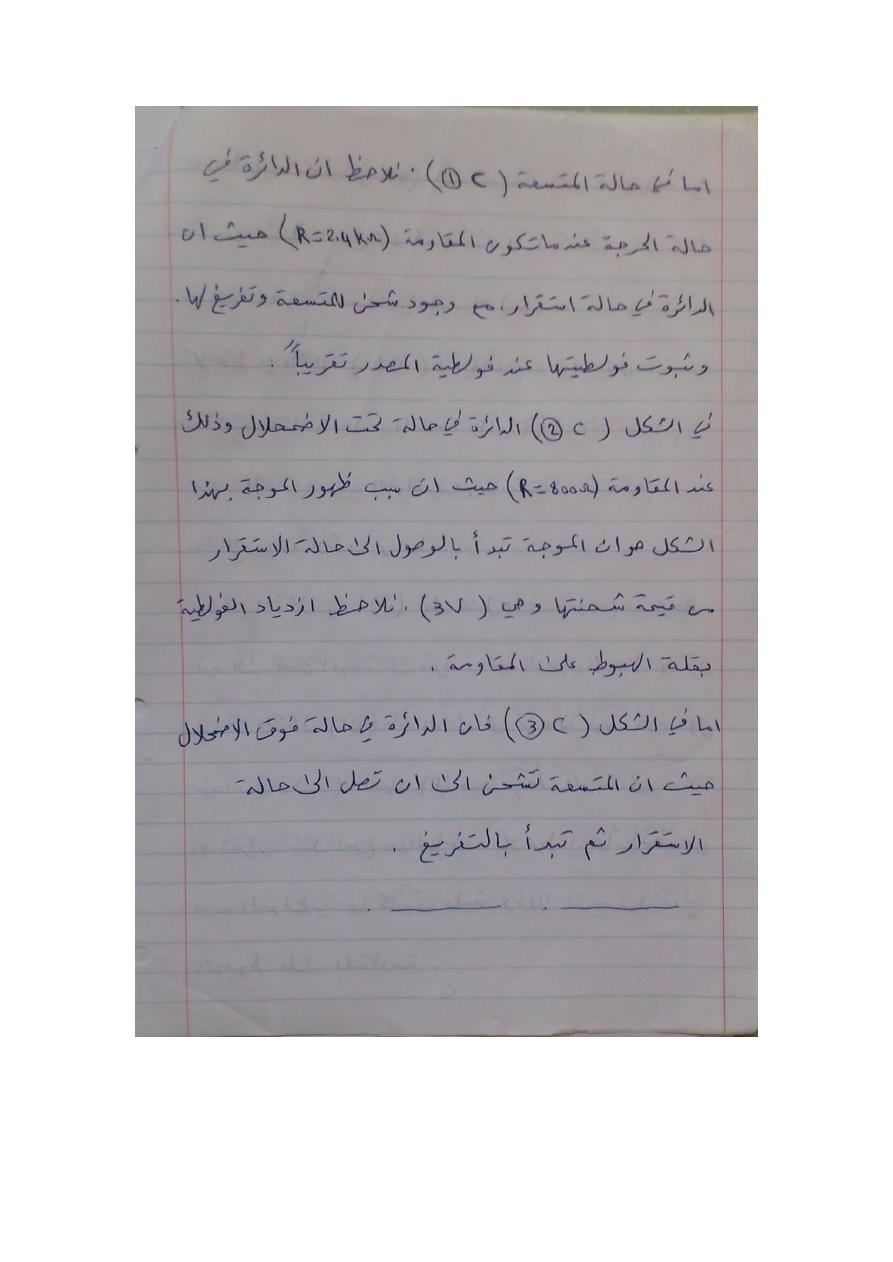 اما في حالة المتسعة (C ①). نلاحظ ان الدائرة في
حالة الحرجة عندما تكون المقاومة (R=2.4kΩ) حيث ان
الدائرة في حالة استقرار، مع وجود شحن للمتسعة وتفريغ لها.
وثبوت فولطيتها عند فولطية المصدر تقريباً.
في الشكل (C ②) الدائرة في حالة تحت الاضمحلال وذلك
عند المقاومة (R=800Ω) حيث ان سبب ظهور الموجة بهذا
الشكل هو ان الموجة تبدأ بالوصول الى حالة الاستقرار
من قيمة شحنتها وهي (3V). نلاحظ ازدياد الفولطية
بقلة الهبوط على المقاومة.
اما في الشكل (C ③) فان الدائرة في حالة فوق الاضمحلال
حيث ان المتسعة تشحن الى ان تصل الى حالة
الاستقرار ثم تبدأ بالتفريغ.